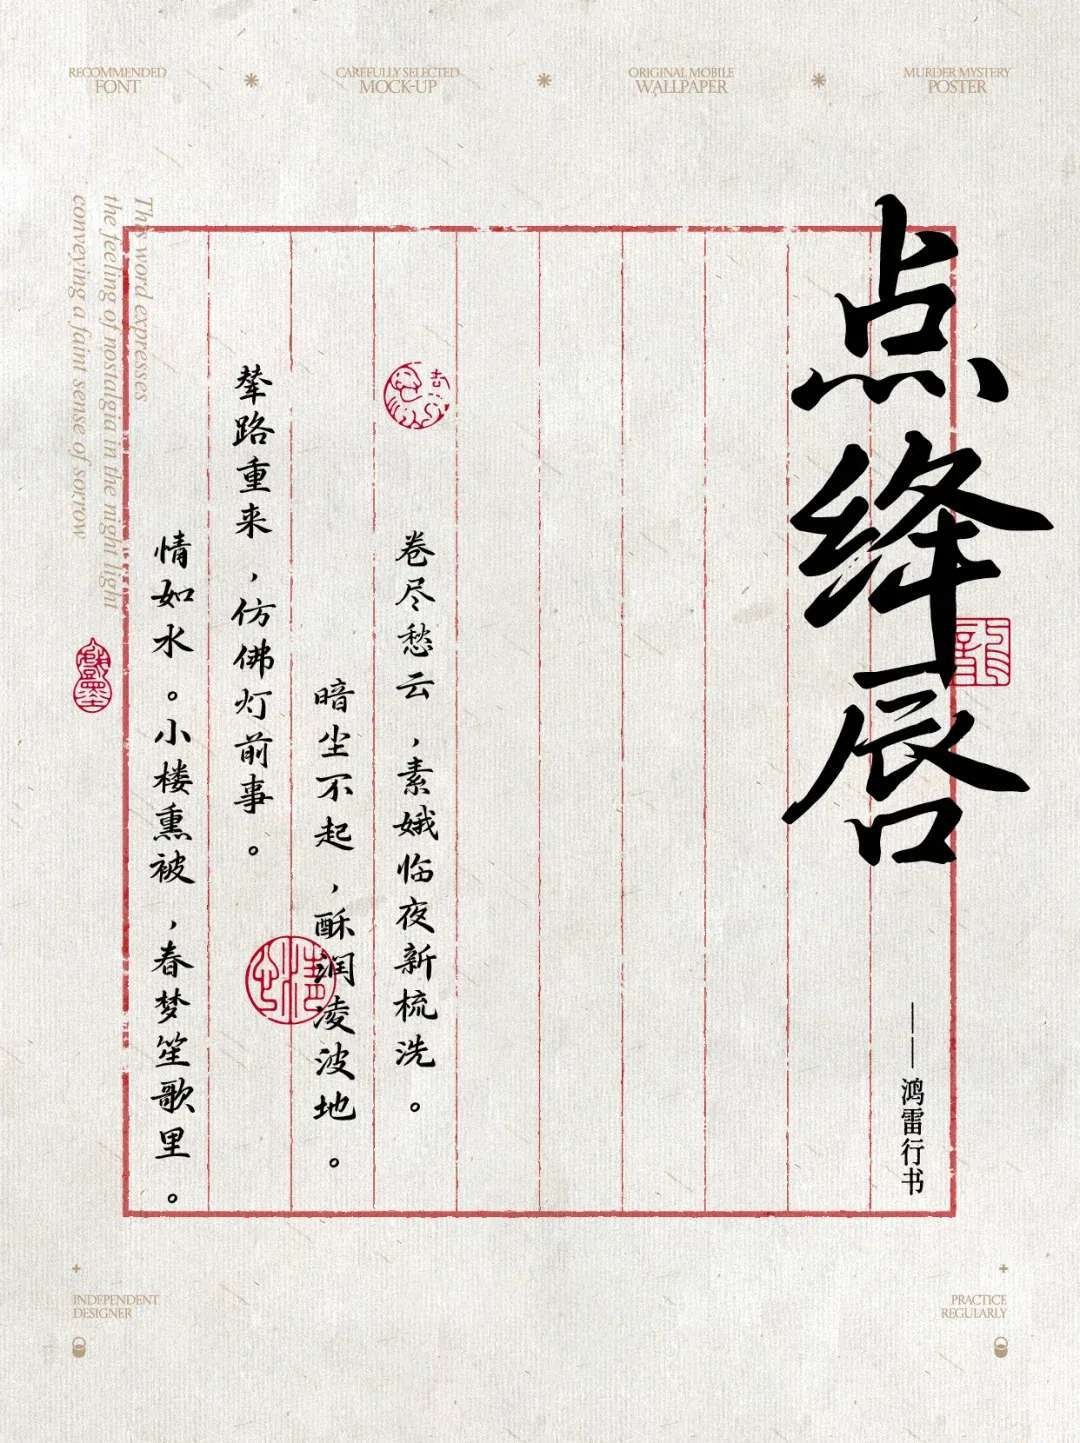 RECOMMENDED
FONT
CAREFULLY SELECTED
MOCK-UP
ORIGINAL MOBILE
WALLPAPER
MURDER MYSTERY
POSTER
点绛唇
——鸿雷行书
卷尽愁云，素娥临夜新梳洗。
暗尘不起，酥润凌波地。
辇路重来，仿佛灯前事。
情如水。小楼熏被，春梦笙歌里。
This word expresses
the feeling of nostalgia in the night light
conveying a faint sense of sorrow
龍
INDEPENDENT
DESIGNER
PRACTICE
REGULARLY